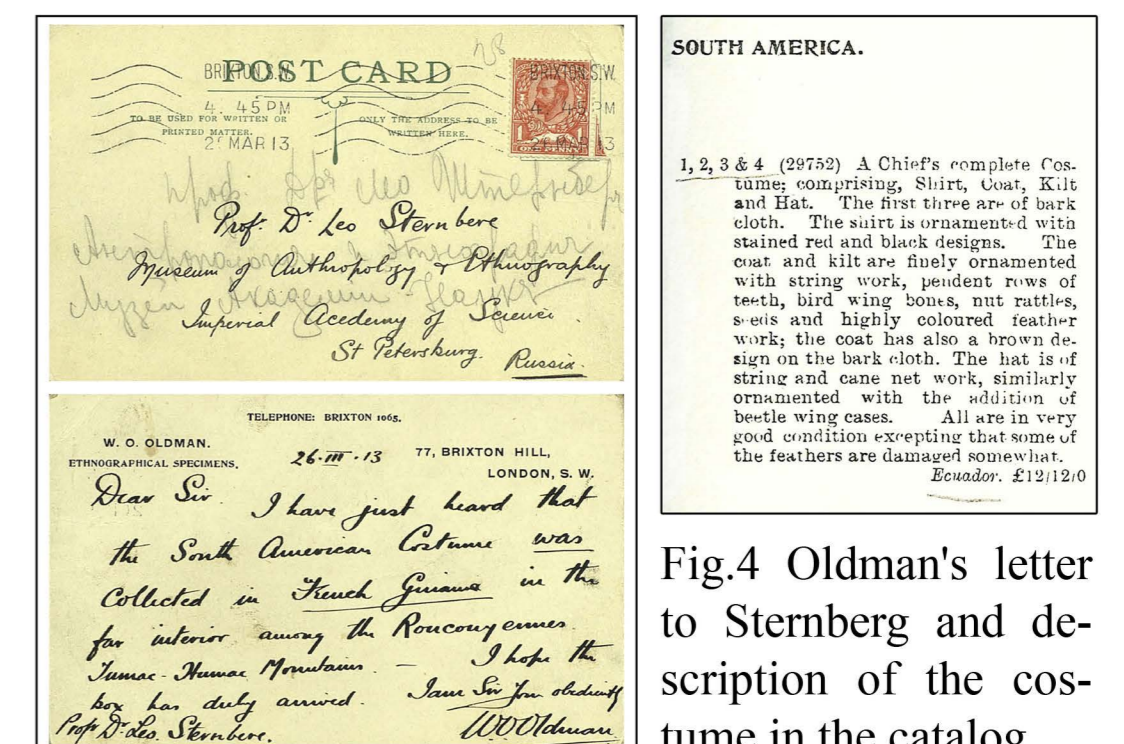 28
POST CARD
BRIXTON.S.W.
4. 45 PM
26 MAR 13
BRIXTON.S.W.
4. 45 PM
26 MAR 13
1 ONE PENNY 1
TO BE USED FOR WRITTEN OR
PRINTED MATTER.
ONLY THE ADDRESS TO BE
WRITTEN HERE.
проф. Др Лео Штернберг
Prof. Dr Leo Sternbere
Антропологии и этнографии
Museum of Anthropology & Ethnography
Музей Академии Наук
Imperial Acedemy of Science.
St Petersburg.
Russia.
TELEPHONE: BRIXTON 1065.
W. O. OLDMAN.
ETHNOGRAPHICAL SPECIMENS.
26·III·13
77, BRIXTON HILL,
LONDON, S. W.
Dear Sir
I have just heard that
the South American Costume was
Collected in French Guiana in the
far interior among the Roucouyennes
Tumac-Humac Mountains. — I hope the
box has duly arrived. I am Sir Your obediently
Prof Dr Leo. Sternbere. WOOldman
SOUTH AMERICA.
1, 2, 3 & 4 (29752) A Chief's complete Cos-
tume; comprising, Shirt, Coat, Kilt
and Hat. The first three are of bark
cloth. The shirt is ornamented with
stained red and black designs. The
coat and kilt are finely ornamented
with string work, pendent rows of
teeth, bird wing bones, nut rattles,
seeds and highly coloured feather
work; the coat has also a brown de-
sign on the bark cloth. The hat is of
string and cane net work, similarly
ornamented with the addition of
beetle wing cases. All are in very
good condition excepting that some of
the feathers are damaged somewhat.
Ecuador. £12/12/0
Fig.4 Oldman's letter
to Sternberg and de-
scription of the cos-
tume in the catalog